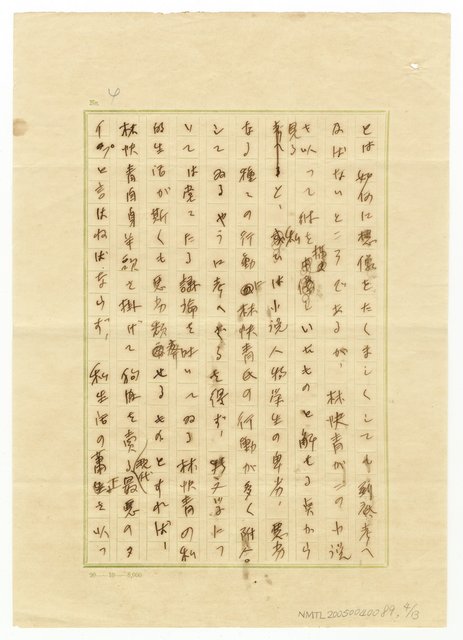 No. 4
とは如何に想像をたくましくしても到底考へ
及ばないところであるが、林快青がこの小説
を以つて体を いたものと解する点から
見る
考へると、私は小説人物某生の卑劣、悪劣
なる種々の行動は林快青氏の行動が多く附合
してゐるやうに考へざるを得ず、 文学につ
いては堂々たる議論を吐いてゐる林快青の私
的生活が斯くも悪劣 せるものとすれば、
林快青自身羊頭を掛げて狗肉を賣る現代最悪のタ
イプと言はねばならず、私生活の 正を以つ
20—10—5,000
NMTL20050040089, 4/13